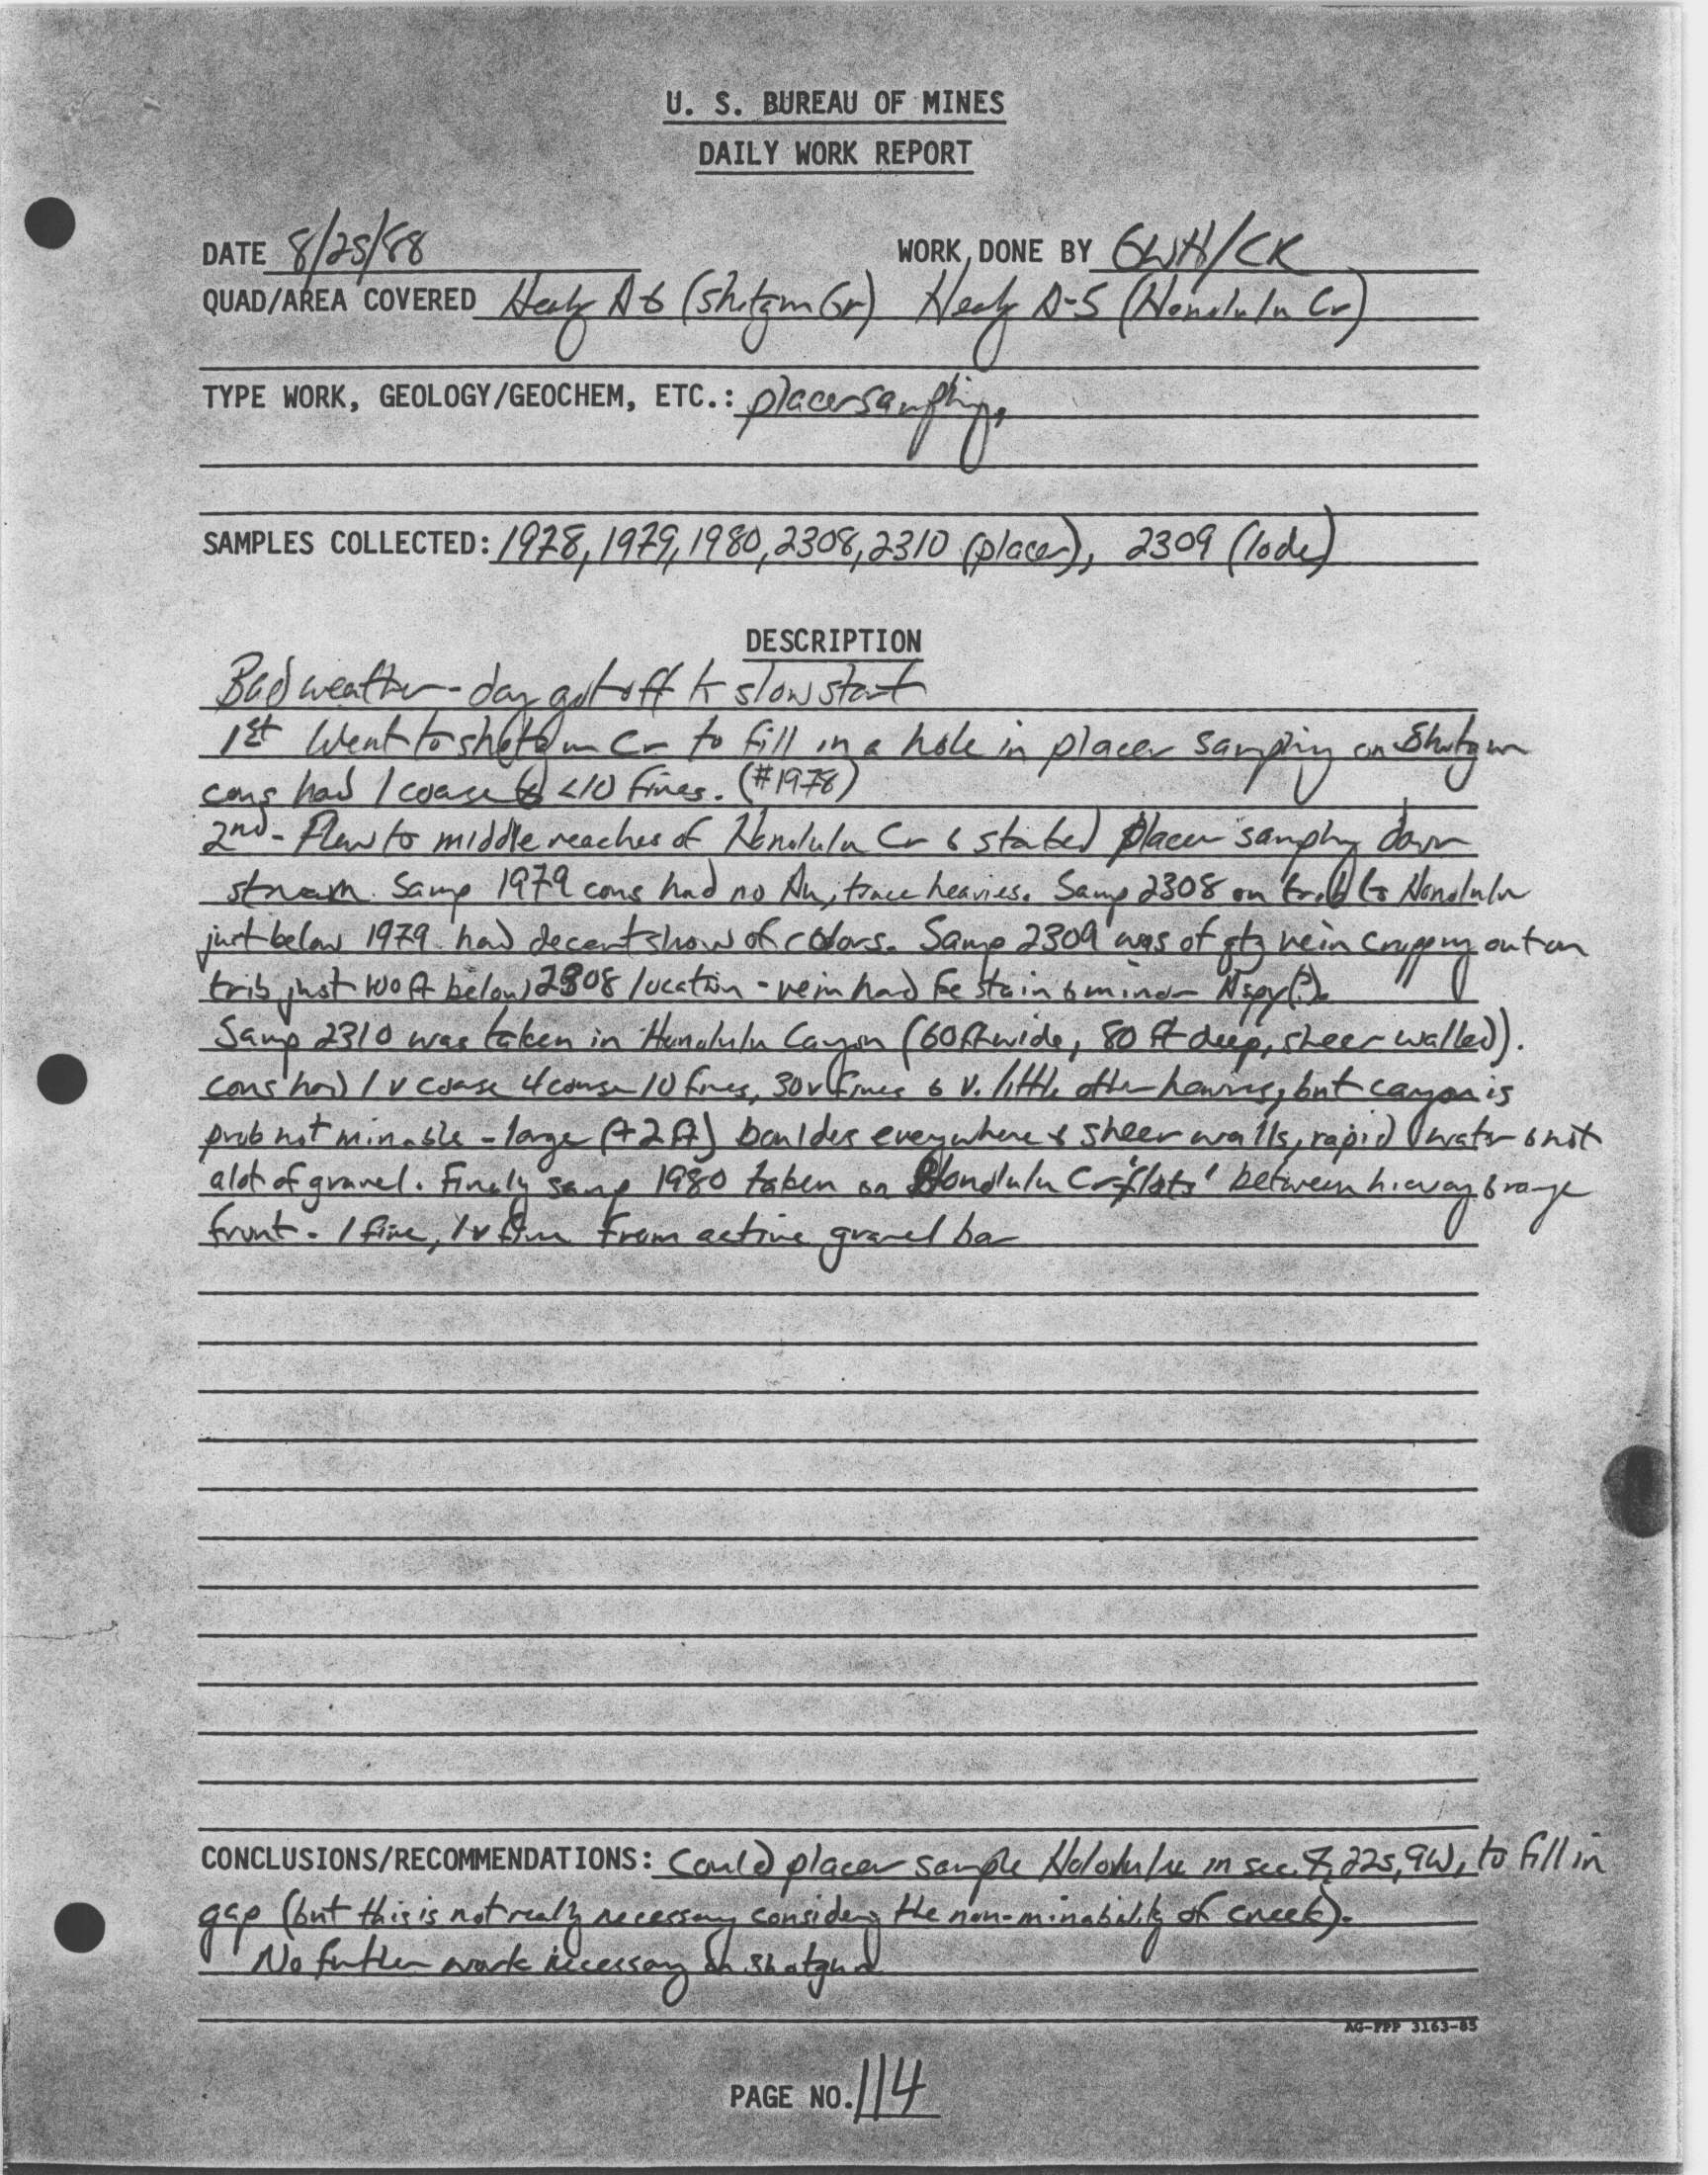 U. S. BUREAU OF MINES
DAILY WORK REPORT
DATE 8/25/88 WORK DONE BY GWH/CK
QUAD/AREA COVERED Healy A6 (Shotgun Cr) Healy A-5 (Honolulu Cr)
TYPE WORK, GEOLOGY/GEOCHEM, ETC.: placer sampling,
SAMPLES COLLECTED: 1978, 1979, 1980, 2308, 2310 (placer), 2309 (lode)
DESCRIPTION
Bad weather - day got off to slow start
1st Went to shotgun Cr to fill in a hole in placer sampling on Shotgun
cons had 1 coarse & <10 fines. (#1978)
2nd - Flew to middle reaches of Honolulu Cr & started placer sampling down
stream. Samp 1979 cons had no Au, trace heavies. Samp 2308 on trib to Honolulu
just below 1979 had decent show of colors. Samp 2309 was of qtz vein cropping out on
trib just 100 ft below 2308 location - vein had Fe stain & minor Aspy(?).
Samp 2310 was taken in Honolulu Canyon (60 ft wide, 80 ft deep, sheer walled).
cons had 1 v coarse 4 coarse 10 fines, 30 v fines & v. little other heavies, but canyon is
prob not minable - large (+2 ft) boulders everywhere & sheer walls, rapid water & not
alot of gravel. Finally samp 1980 taken on Honolulu Cr 'flats' between hiway & range
front - 1 fine, 1 v fine from active gravel bar
CONCLUSIONS/RECOMMENDATIONS: Could placer sample Holoulu in sec. 7, 22S, 9W, to fill in
gap (but this is not really necessary considering the non-minability of creek).
No further work necessary on Shotgun
AG-FPP 3163-85
PAGE NO. 114